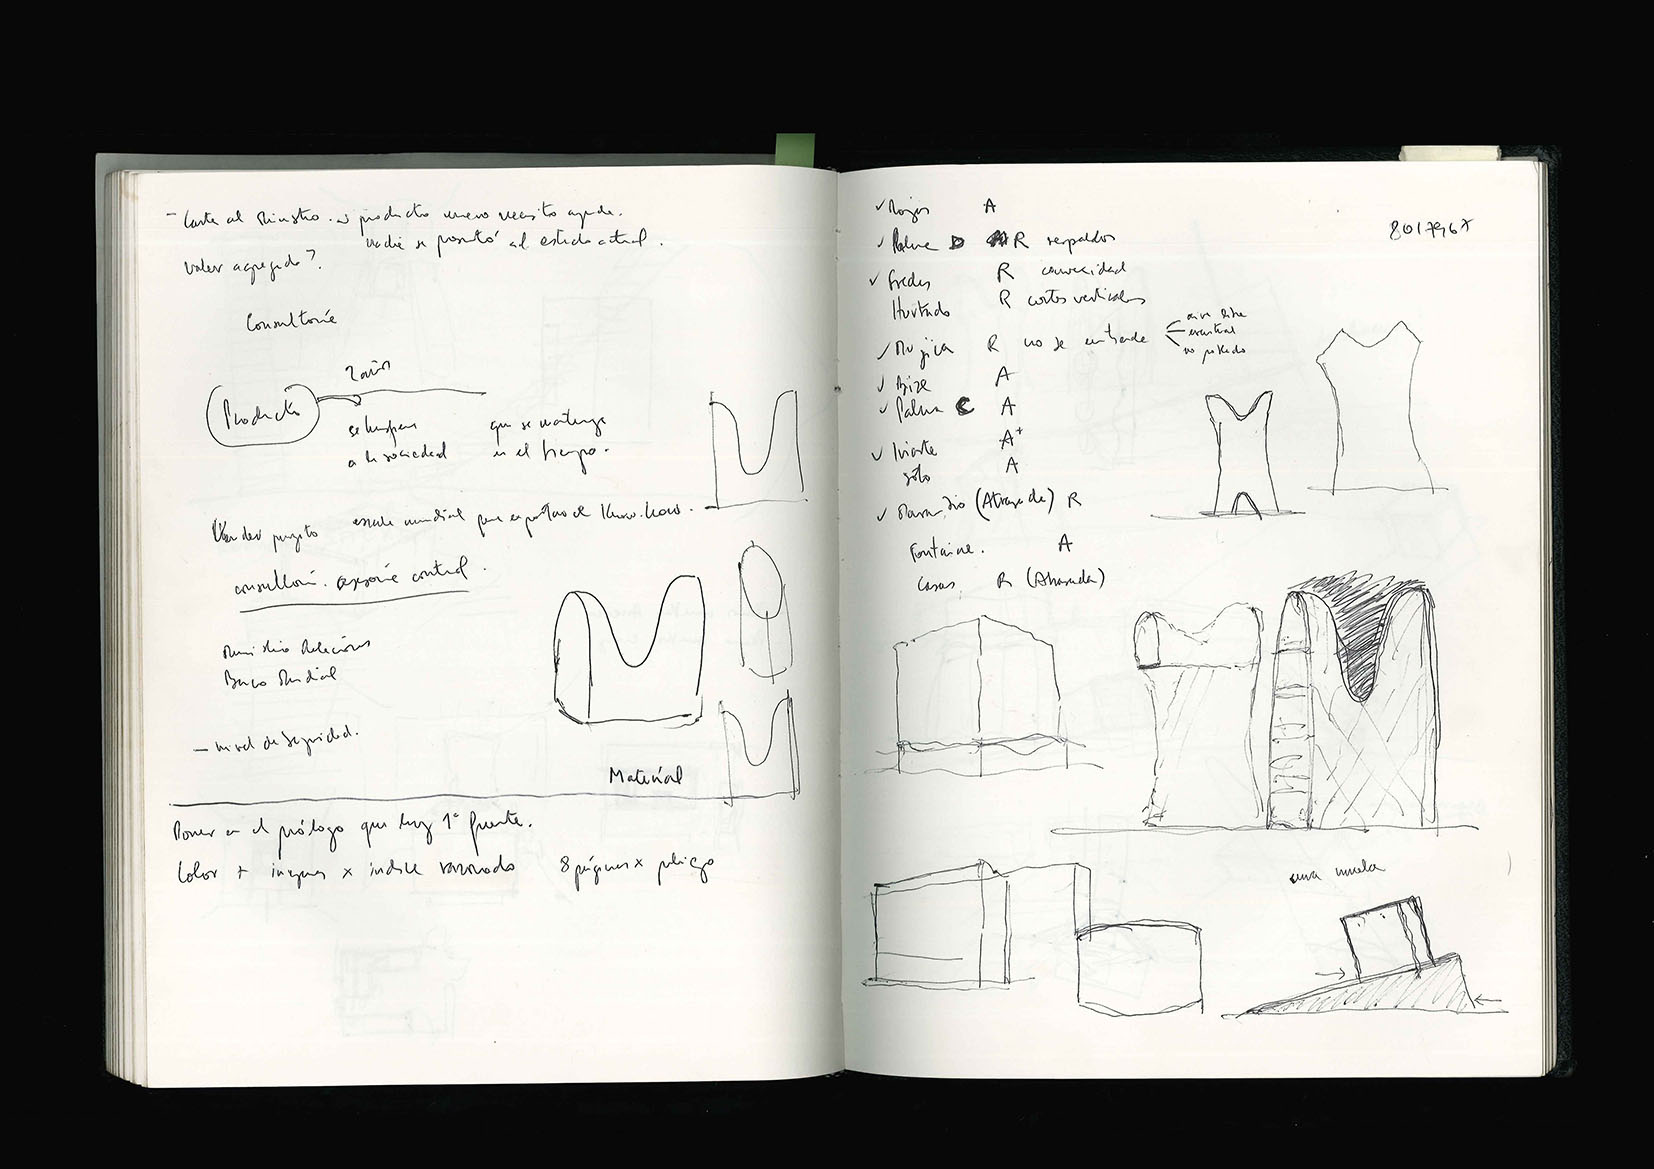 - Carta al Ministro. producto nuevo necesito ayuda.
nadie se presentó al estado actual.
valor agregado?
Consultoría
2 años
Producto
a la sociedad
que se mantenga
en el tiempo.
Vender proyecto escala mundial para exportar el Know-how.
consultoría. asesoría control.
Ministro Relaciones
Banco Mundial
- nivel de seguridad.
Material
Poner en el prólogo que hay 1ª fuente.
Color + x indice razonado 8 páginas x pliego
✓ Rojas A
✓ Palma D R respaldos
✓ Fredes R convexidad
Hurtado R cortes verticales
✓ Mujica R no se entiende
aire libre
no
✓ Bize A
✓ Palma C A
✓ Iriarte A+
Soto A
✓ (Atrasada) R
Fontaine. A
Casas. R (Atrasada)
801796X
una muela